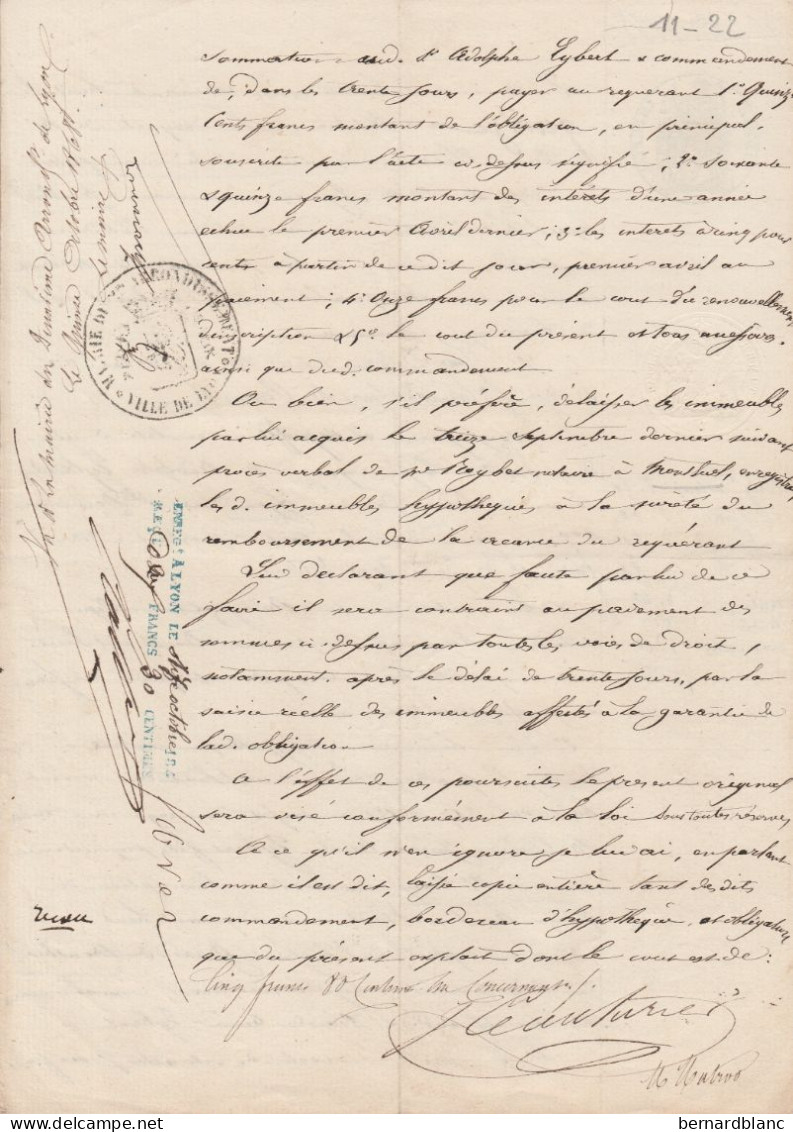 11-22
sommation aud. Sr Adolphe Eybert & commandement
de, dans les trente jours, payer au requerant 1º Quinze
Cents francs montant de l'obligation, en principal,
souscrite par l'acte ci dessus signifié ; 2º soixante
& quinze francs montant des intérêts d'une année
echue le premier Avril dernier ; 3º les interets à cinq pour
cents à partir de cedit jour, premier avril au
paiement ; 4º Onze francs pour le cout du renouvellement
d'inscription & 5º le cout du présent et tous accessoires
ainsi que dud. commandement
Ou bien, s'il préfère, délaisser les immeubles
par lui acquis le treize septembre dernier suivant
procès verbal de me notaire à Montluel, enregistré,
les d. immeubles hypothéqués à la sureté du
remboursement de la creance du requérant
Lui declarant que faute par lui de ce
faire il sera contraint au paiement des
sommes ci-dessus par toutes les voies de droit,
notamment après le délai de trente jours, par la
saisie réelle des immeubles affectés à la garantie de
lad. obligation
A l'effet de ces poursuites le present original
sera visé conformément à la loi sous toutes réserves
A ce qu'il n'en ignore je lui ai, en parlant
comme il est dit, laissé copie entière tant des dits
commandement, bordereau d'hypothèque, et obligation
que du présent exploit dont le cout est de :
Cinq francs 80 Centimes
Vu à la mairie du deuxième Arrondt. de Lyon
Le Quinze Octobre 1868
Le maire
MAIRIE DU 2E ARRONDISSEMENT
VILLE DE LYON
A LYON LE octobre 18
FRANCS 30 CENTIMES
bernardblanc